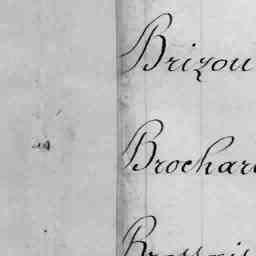 Brizou
Brochar